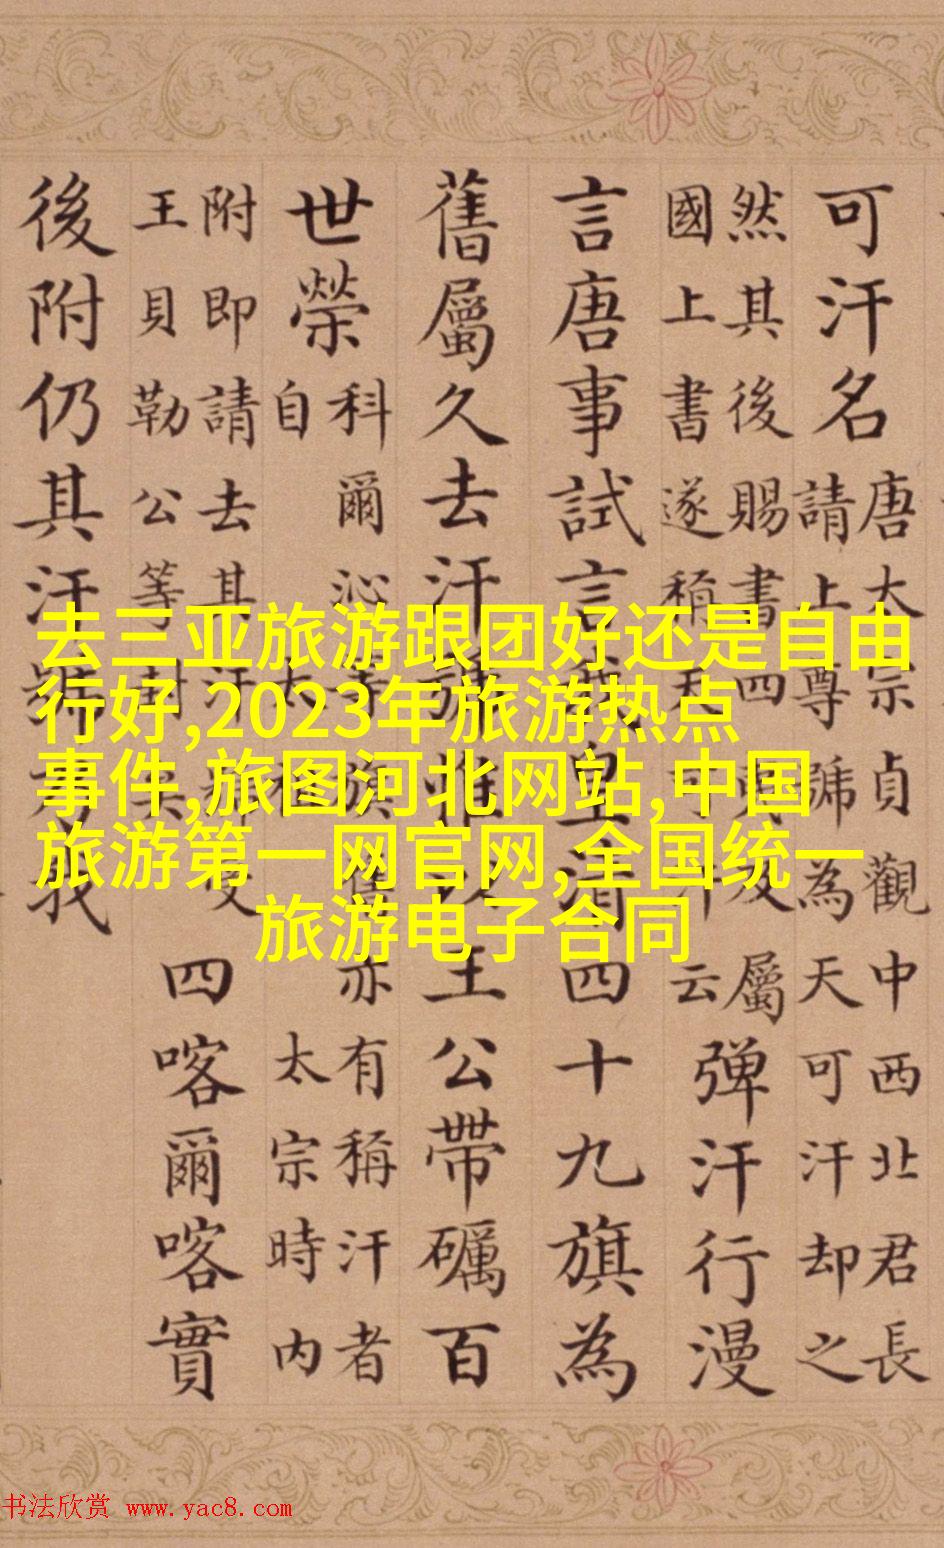 去三亚旅游跟团好还是自由
行好,2023年旅游热点
事件,旅图河北网站,中国
旅游第一网官网,全国统一
旅游电子合同
可汗名
唐太宗貞觀中西北君長
請上尊號為天可汗却之
然其後賜書四夷及屬
國上書遂稱天可汗云
弹汗行漫
言唐事試言我皇清四十九旗為
舊屬久去汗號惟以王公帶礪百
世榮
科爾沁等旗舊亦有稱汗者
自太祖太宗時內
附即請去其汗
王貝勒公等封
四喀爾喀實
後附仍其汗號為我
书法欣赏 www.yac8.com